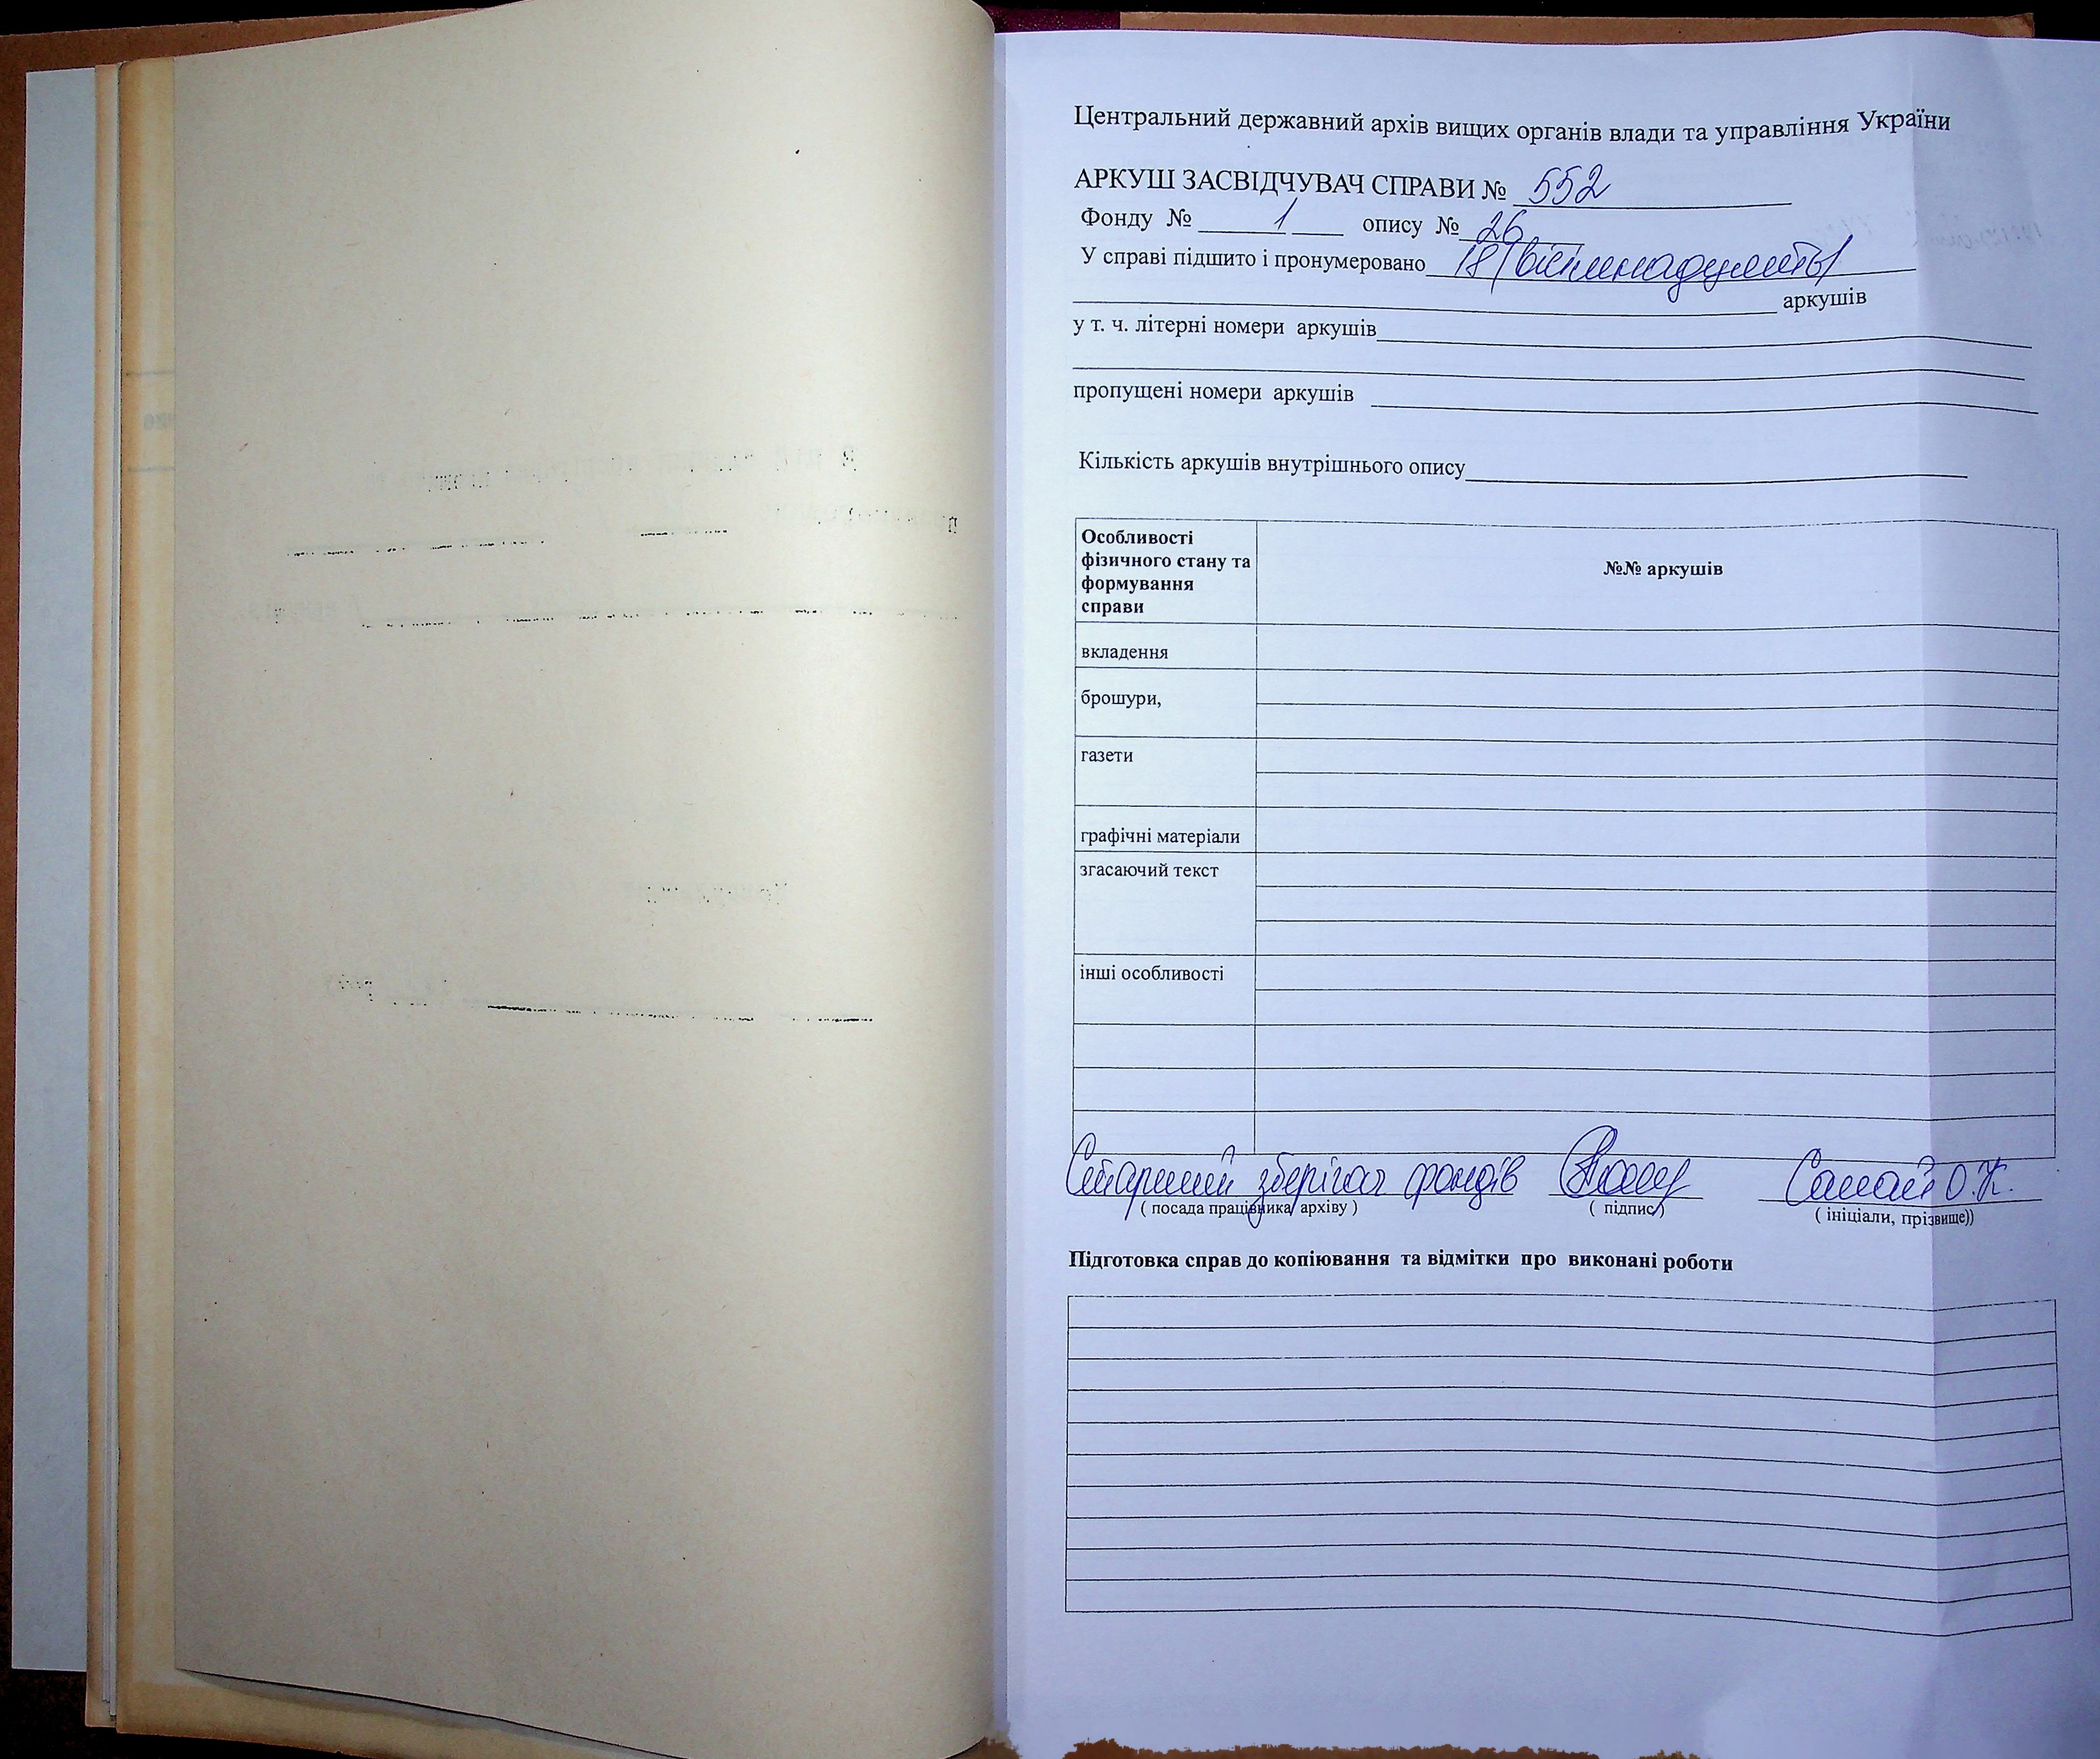 Центральний державний архів вищих органів влади та управління України
АРКУШ ЗАСВІДЧУВАЧ СПРАВИ № 552
Фонду № 1 опису № 26
У справі підшито і пронумеровано 18 (вісімнадцять)
аркушів
у т. ч. літерні номери аркушів
пропущені номери аркушів
Кількість аркушів внутрішнього опису
Особливості
фізичного стану та
формування
справи
№№ аркушів
вкладення
брошури,
газети
графічні матеріали
згасаючий текст
інші особливості
Старший зберігач фондів
( посада працівника архіву )
( підпис )
( ініціали, прізвище))
Підготовка справ до копіювання та відмітки про виконані роботи